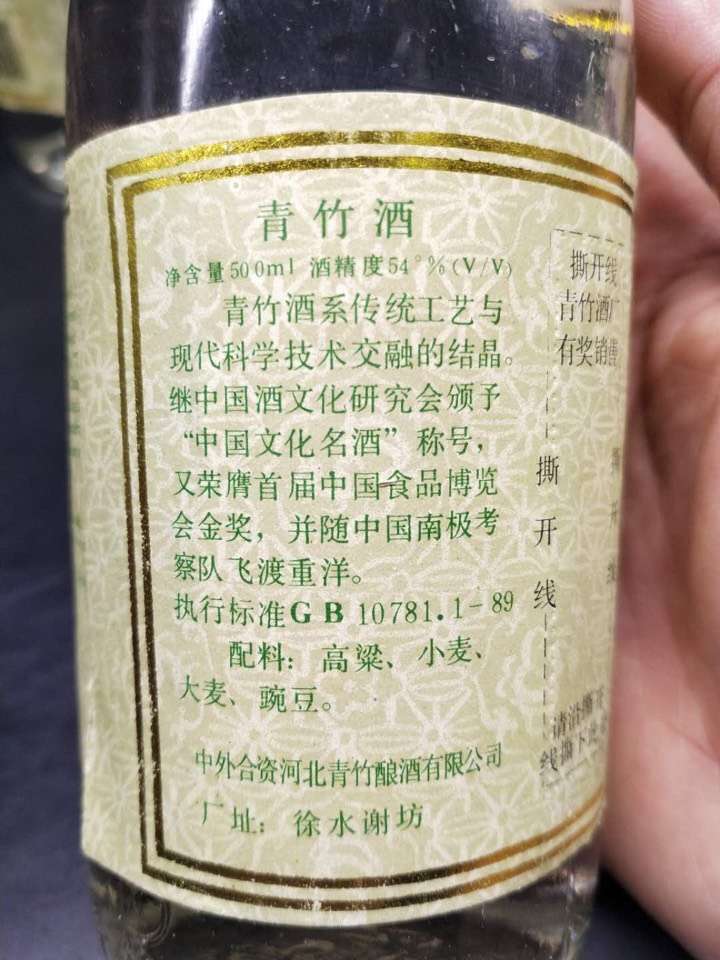 青竹酒
净含量500ml 酒精度54°%(V/V)
青竹酒系传统工艺与
现代科学技术交融的结晶。
继中国酒文化研究会颁予
“中国文化名酒”称号，
又荣膺首届中国食品博览
会金奖，并随中国南极考
察队飞渡重洋。
执行标准GB 10781.1-89
配料：高粱、小麦、
大麦、豌豆。
中外合资河北青竹酿酒有限公司
厂址：徐水谢坊
撕开线
青竹酒厂
有奖销售
撕开线
撕开线
请沿撕开
线撕下